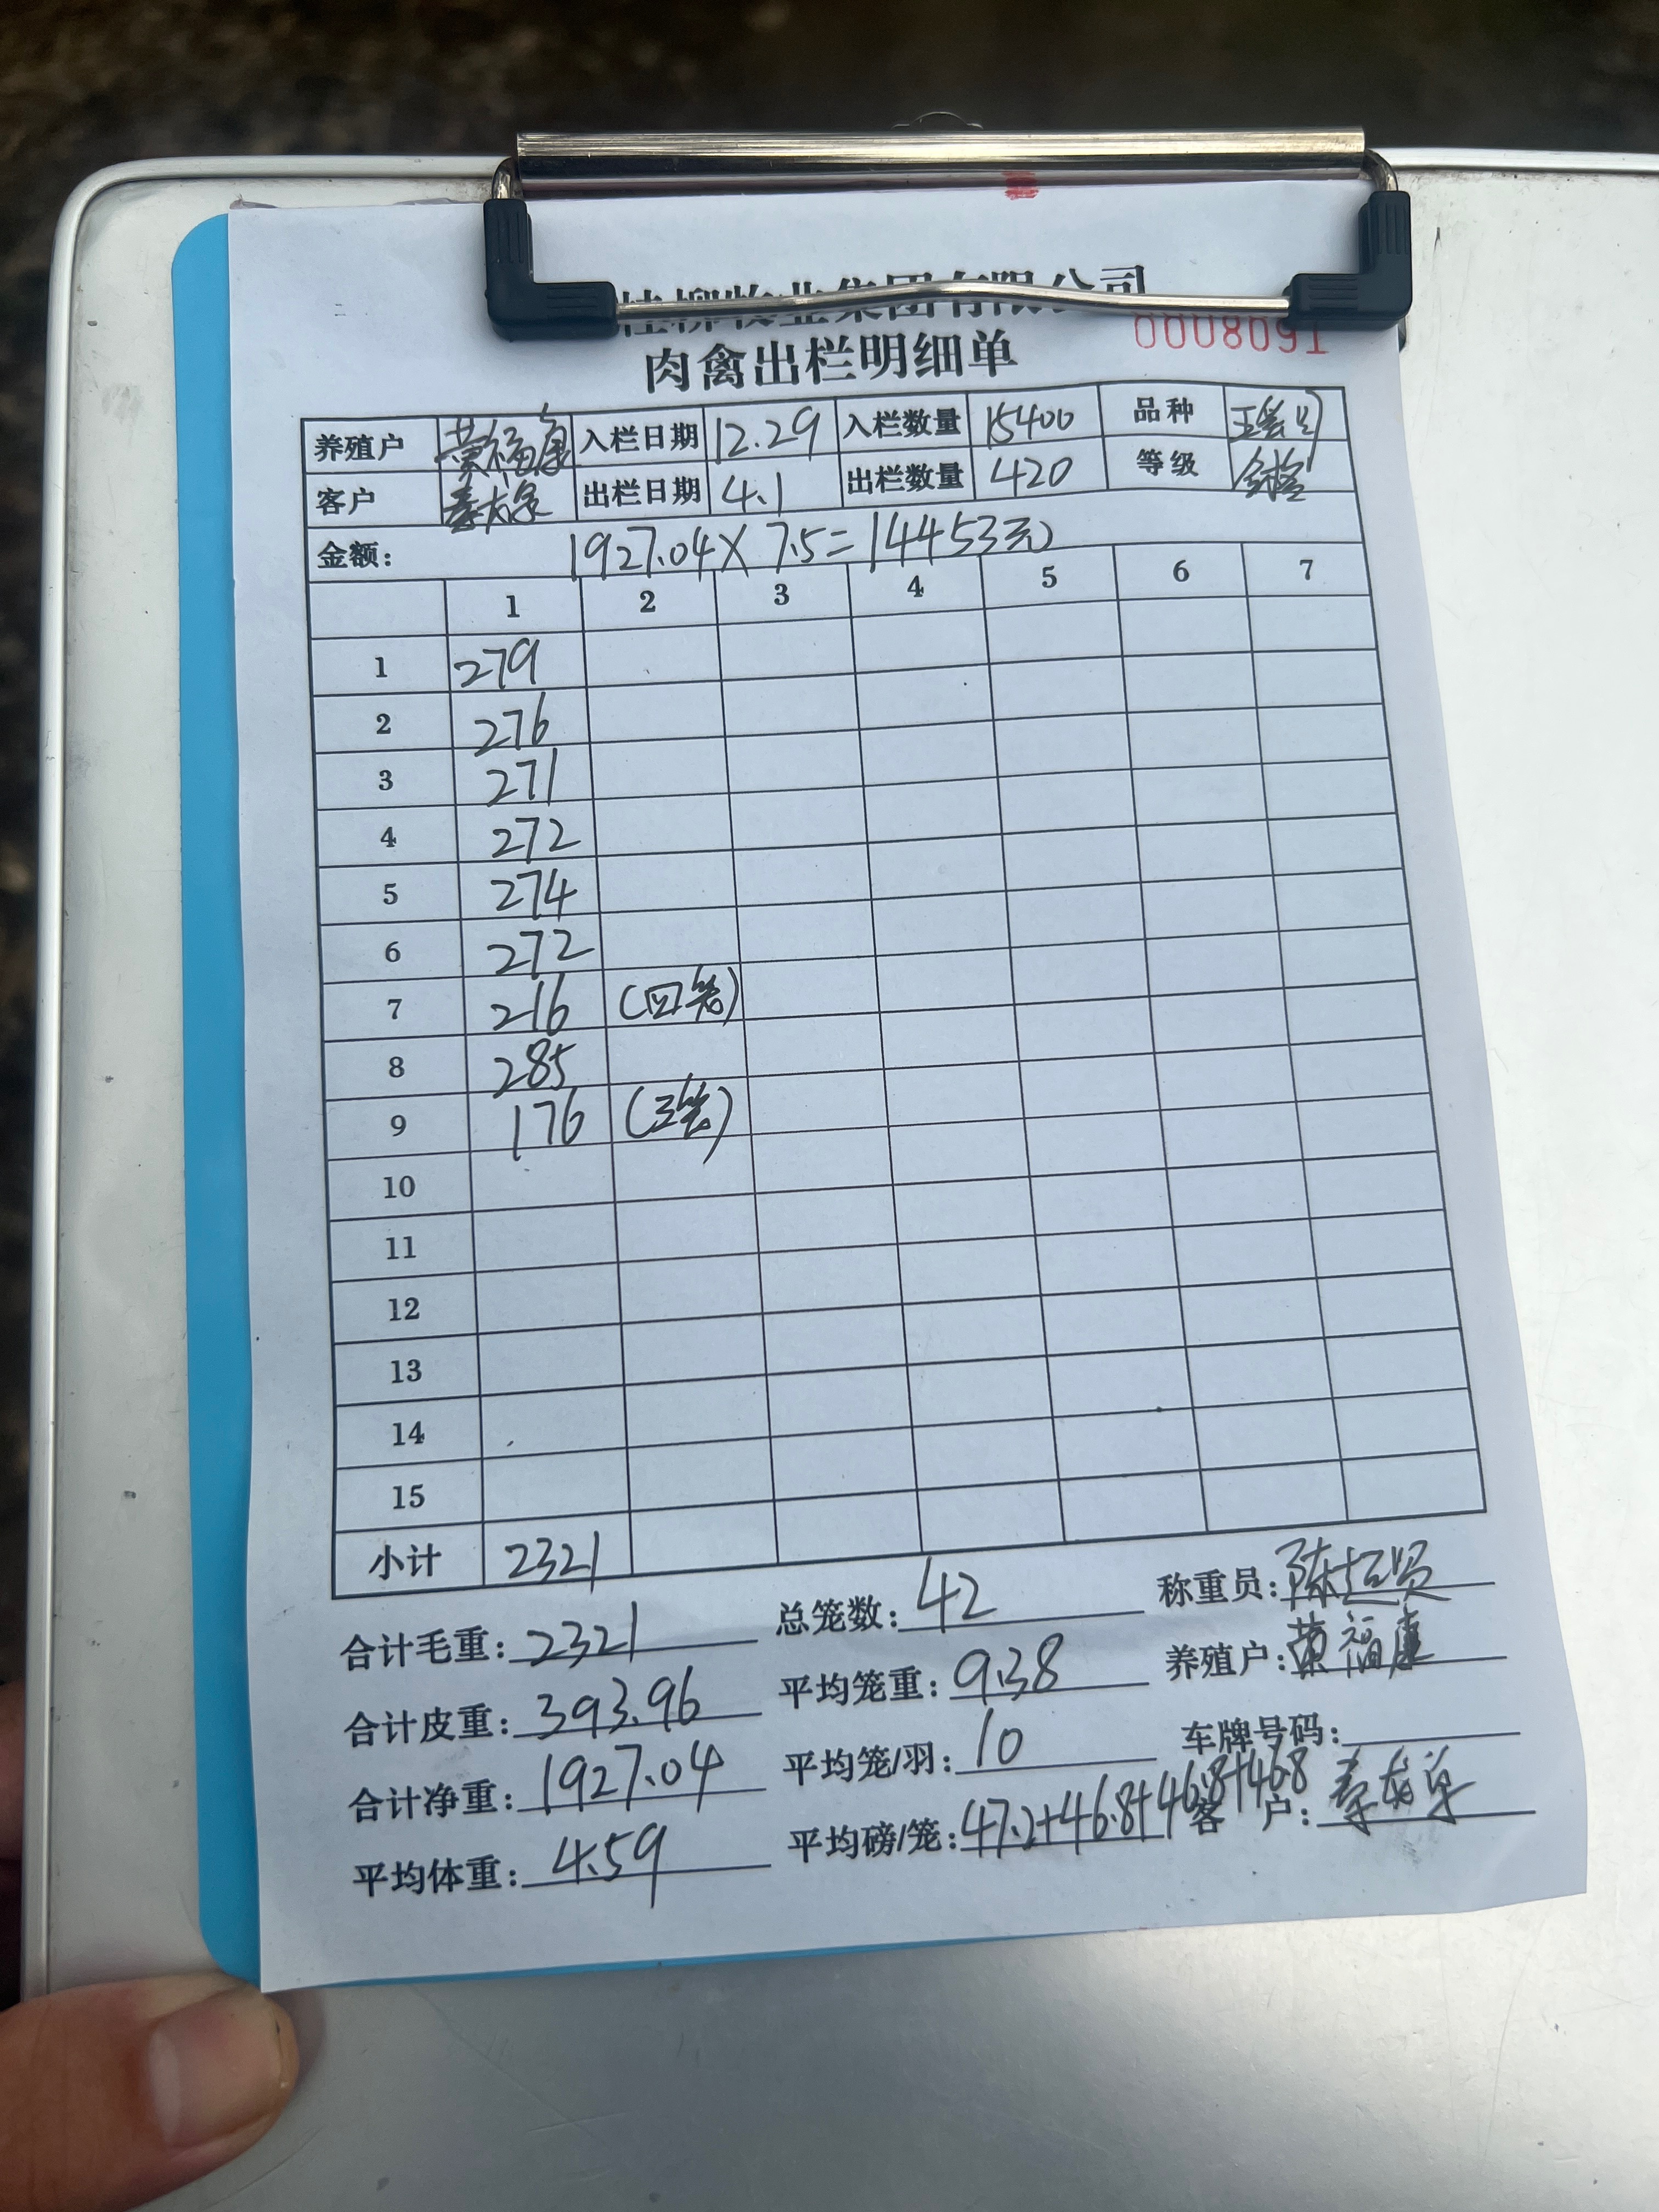 桂柳牧业集团有限公司
0008091
肉禽出栏明细单
养殖户 黄福康 入栏日期 12.29 入栏数量 15400 品种
客户 出栏日期 4.1 出栏数量 420 等级
金额: 1927.04×7.5=14453元
1 2 3 4 5 6 7
1 279
2 276
3 271
4 272
5 274
6 272
7 216 (四笼)
8 285
9 176 (三笼)
10
11
12
13
14
15
小计 2321
合计毛重: 2321 总笼数: 42 称重员: 陈超贤
合计皮重: 393.96 平均笼重: 9.38 养殖户: 黄福康
合计净重: 1927.04 平均笼/羽: 10 车牌号码:
平均体重: 4.59 平均磅/笼: 47.2+46.8+46.8+46.8 客户: